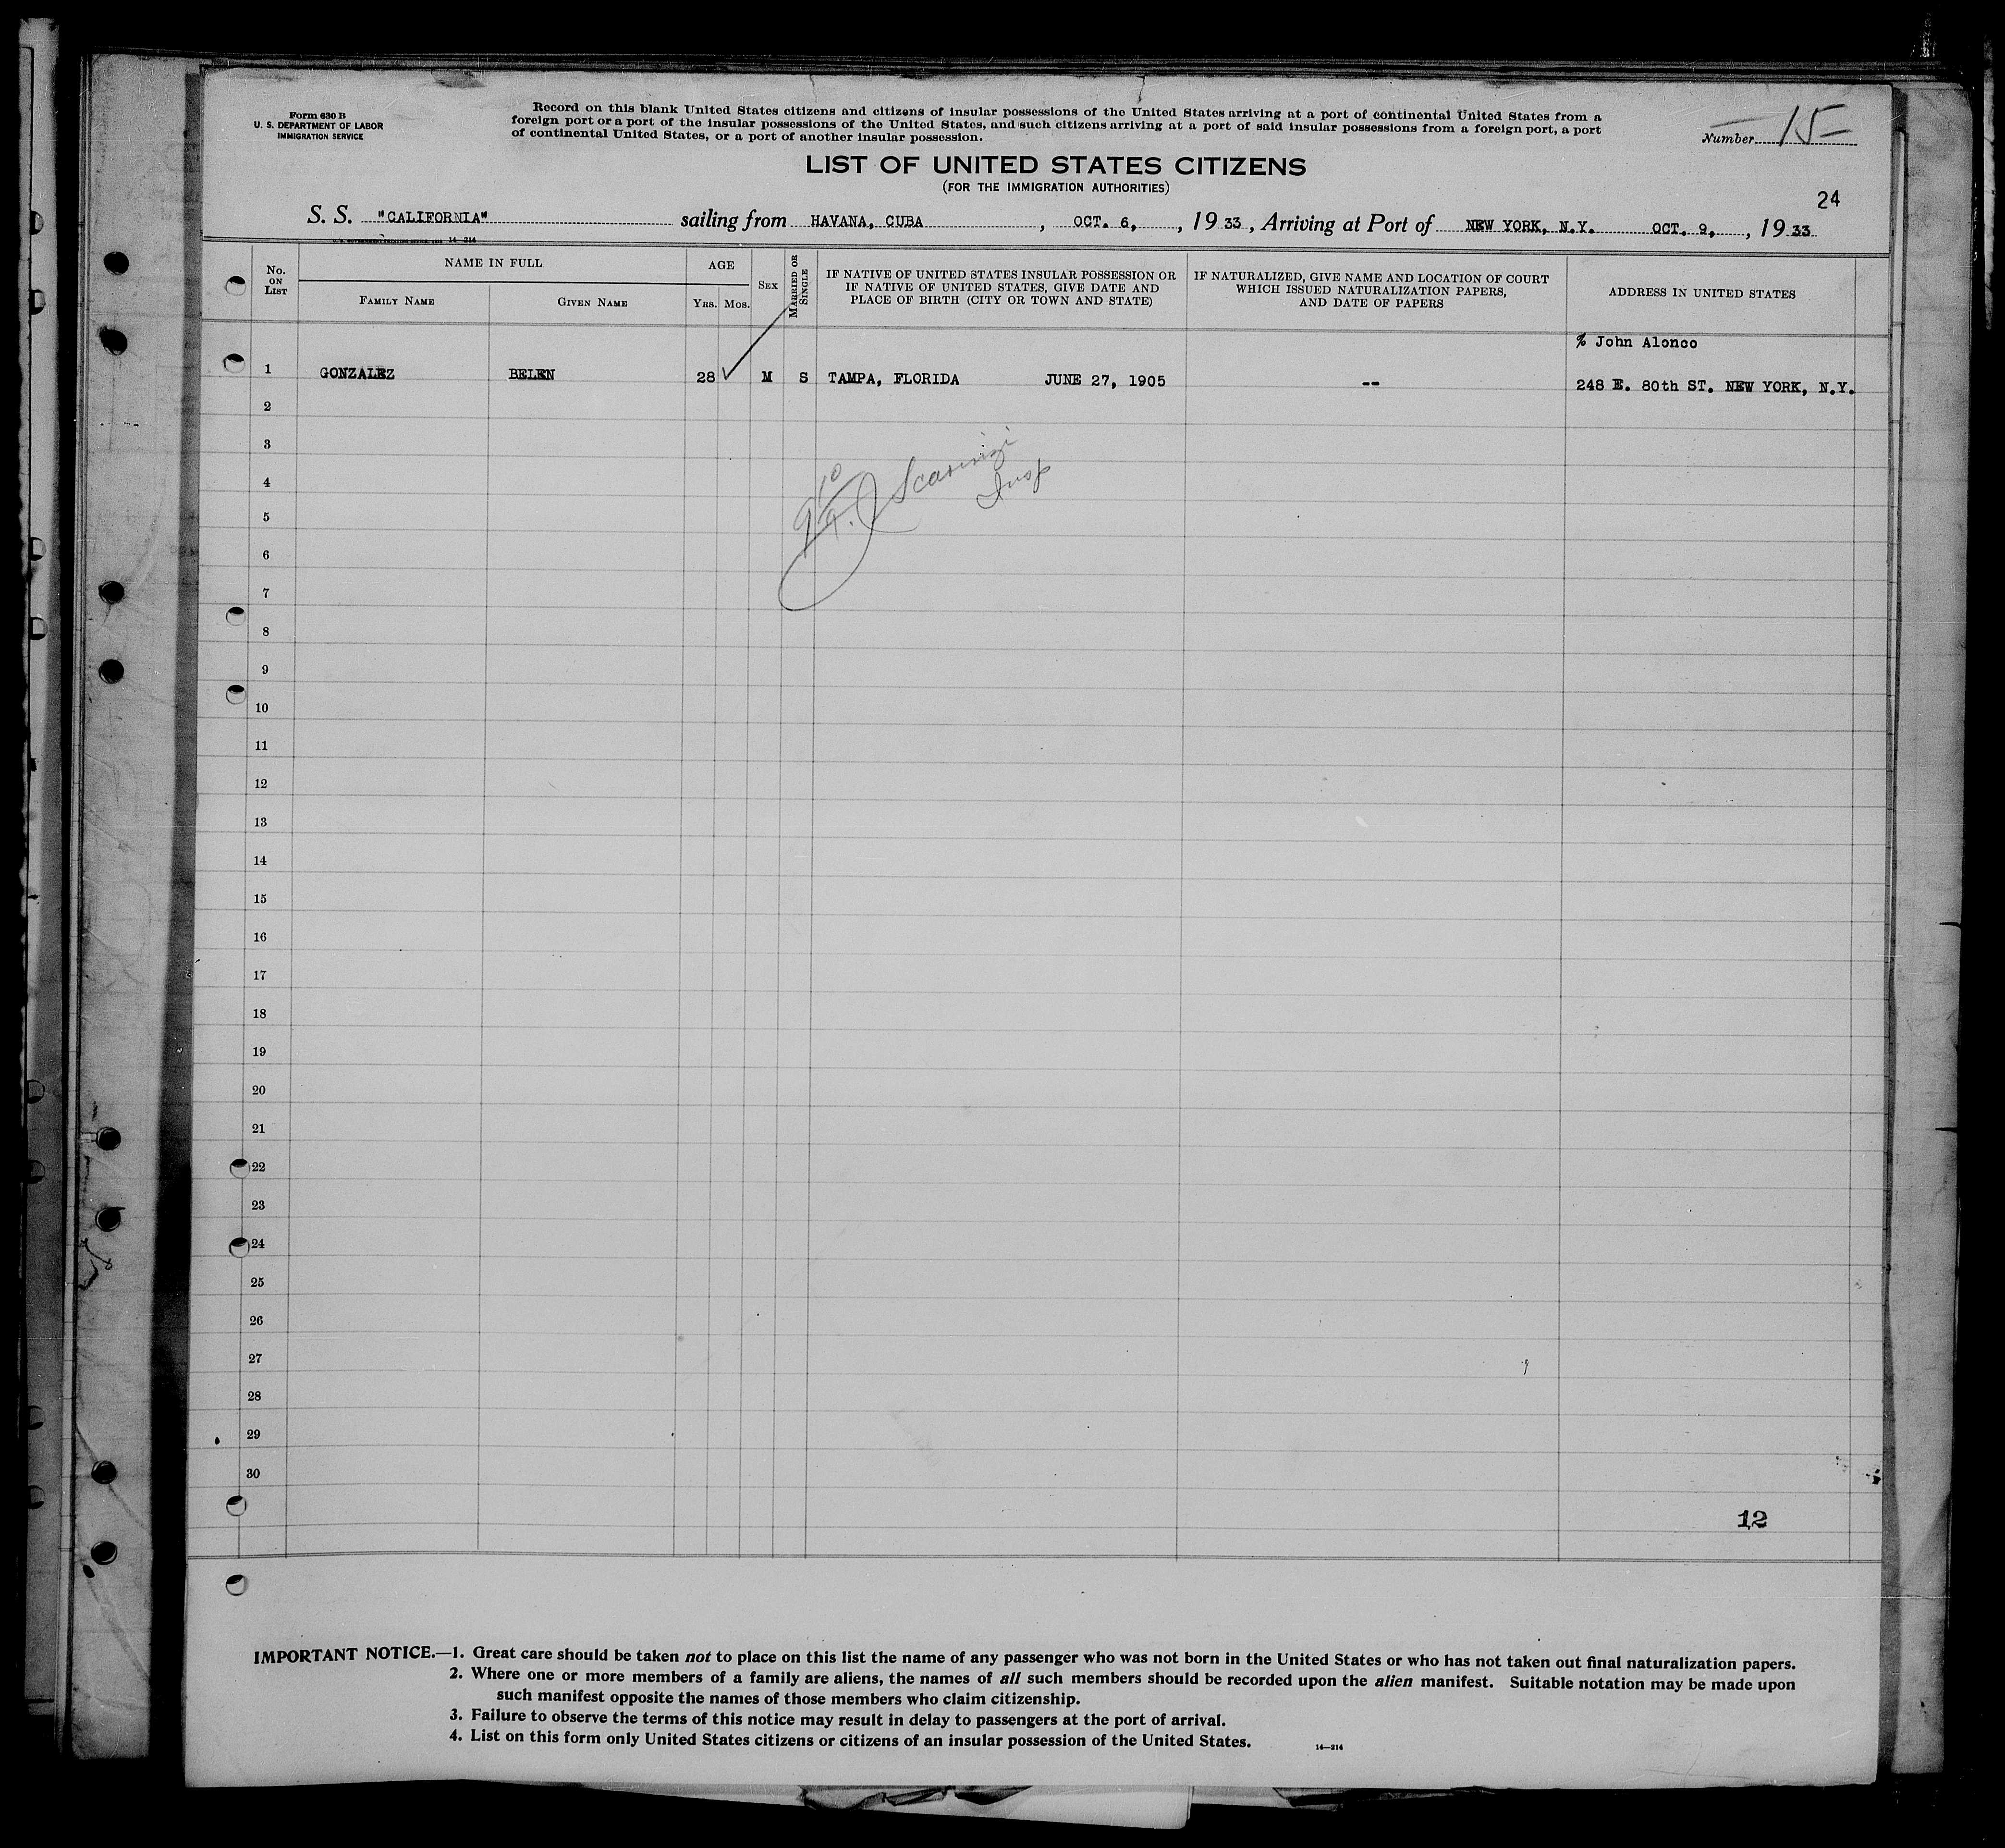 Form 630 B
U. S. DEPARTMENT OF LABOR
IMMIGRATION SERVICE
Record on this blank United States citizens and citizens of insular possessions of the United States arriving at a port of continental United States from a
foreign port or a port of the insular possessions of the United States, and such citizens arriving at a port of said insular possessions from a foreign port, a port
of continental United States, or a port of another insular possession.
Number 15
LIST OF UNITED STATES CITIZENS
(FOR THE IMMIGRATION AUTHORITIES)
24
S. S. "CALIFORNIA" sailing from HAVANA, CUBA, OCT. 6, , 1933, Arriving at Port of NEW YORK, N.Y. OCT. 9, , 1933
14—214
No. ON LIST
NAME IN FULL
FAMILY NAME
GIVEN NAME
AGE
YRS. MOS.
SEX
MARRIED OR SINGLE
IF NATIVE OF UNITED STATES INSULAR POSSESSION OR
IF NATIVE OF UNITED STATES, GIVE DATE AND
PLACE OF BIRTH (CITY OR TOWN AND STATE)
IF NATURALIZED, GIVE NAME AND LOCATION OF COURT
WHICH ISSUED NATURALIZATION PAPERS,
AND DATE OF PAPERS
ADDRESS IN UNITED STATES
% John Alonco
1 GONZALEZ BELEN 28 ✓ M S TAMPA, FLORIDA JUNE 27, 1905 -- 248 E. 80th ST. NEW YORK, N.Y.
2
3
4
5
6
7
8
9
10
11
12
13
14
15
16
17
18
19
20
21
22
23
24
25
26
27
28
29
30
12
IMPORTANT NOTICE.—1. Great care should be taken not to place on this list the name of any passenger who was not born in the United States or who has not taken out final naturalization papers.
2. Where one or more members of a family are aliens, the names of all such members should be recorded upon the alien manifest. Suitable notation may be made upon
such manifest opposite the names of those members who claim citizenship.
3. Failure to observe the terms of this notice may result in delay to passengers at the port of arrival.
4. List on this form only United States citizens or citizens of an insular possession of the United States.
14—214